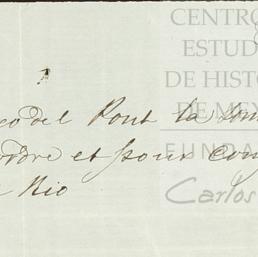 CENTRO
ESTUD
DE HISTO
DE ME
FUNDA
Carlos
del Pont la som
ordre et pour com
Rio